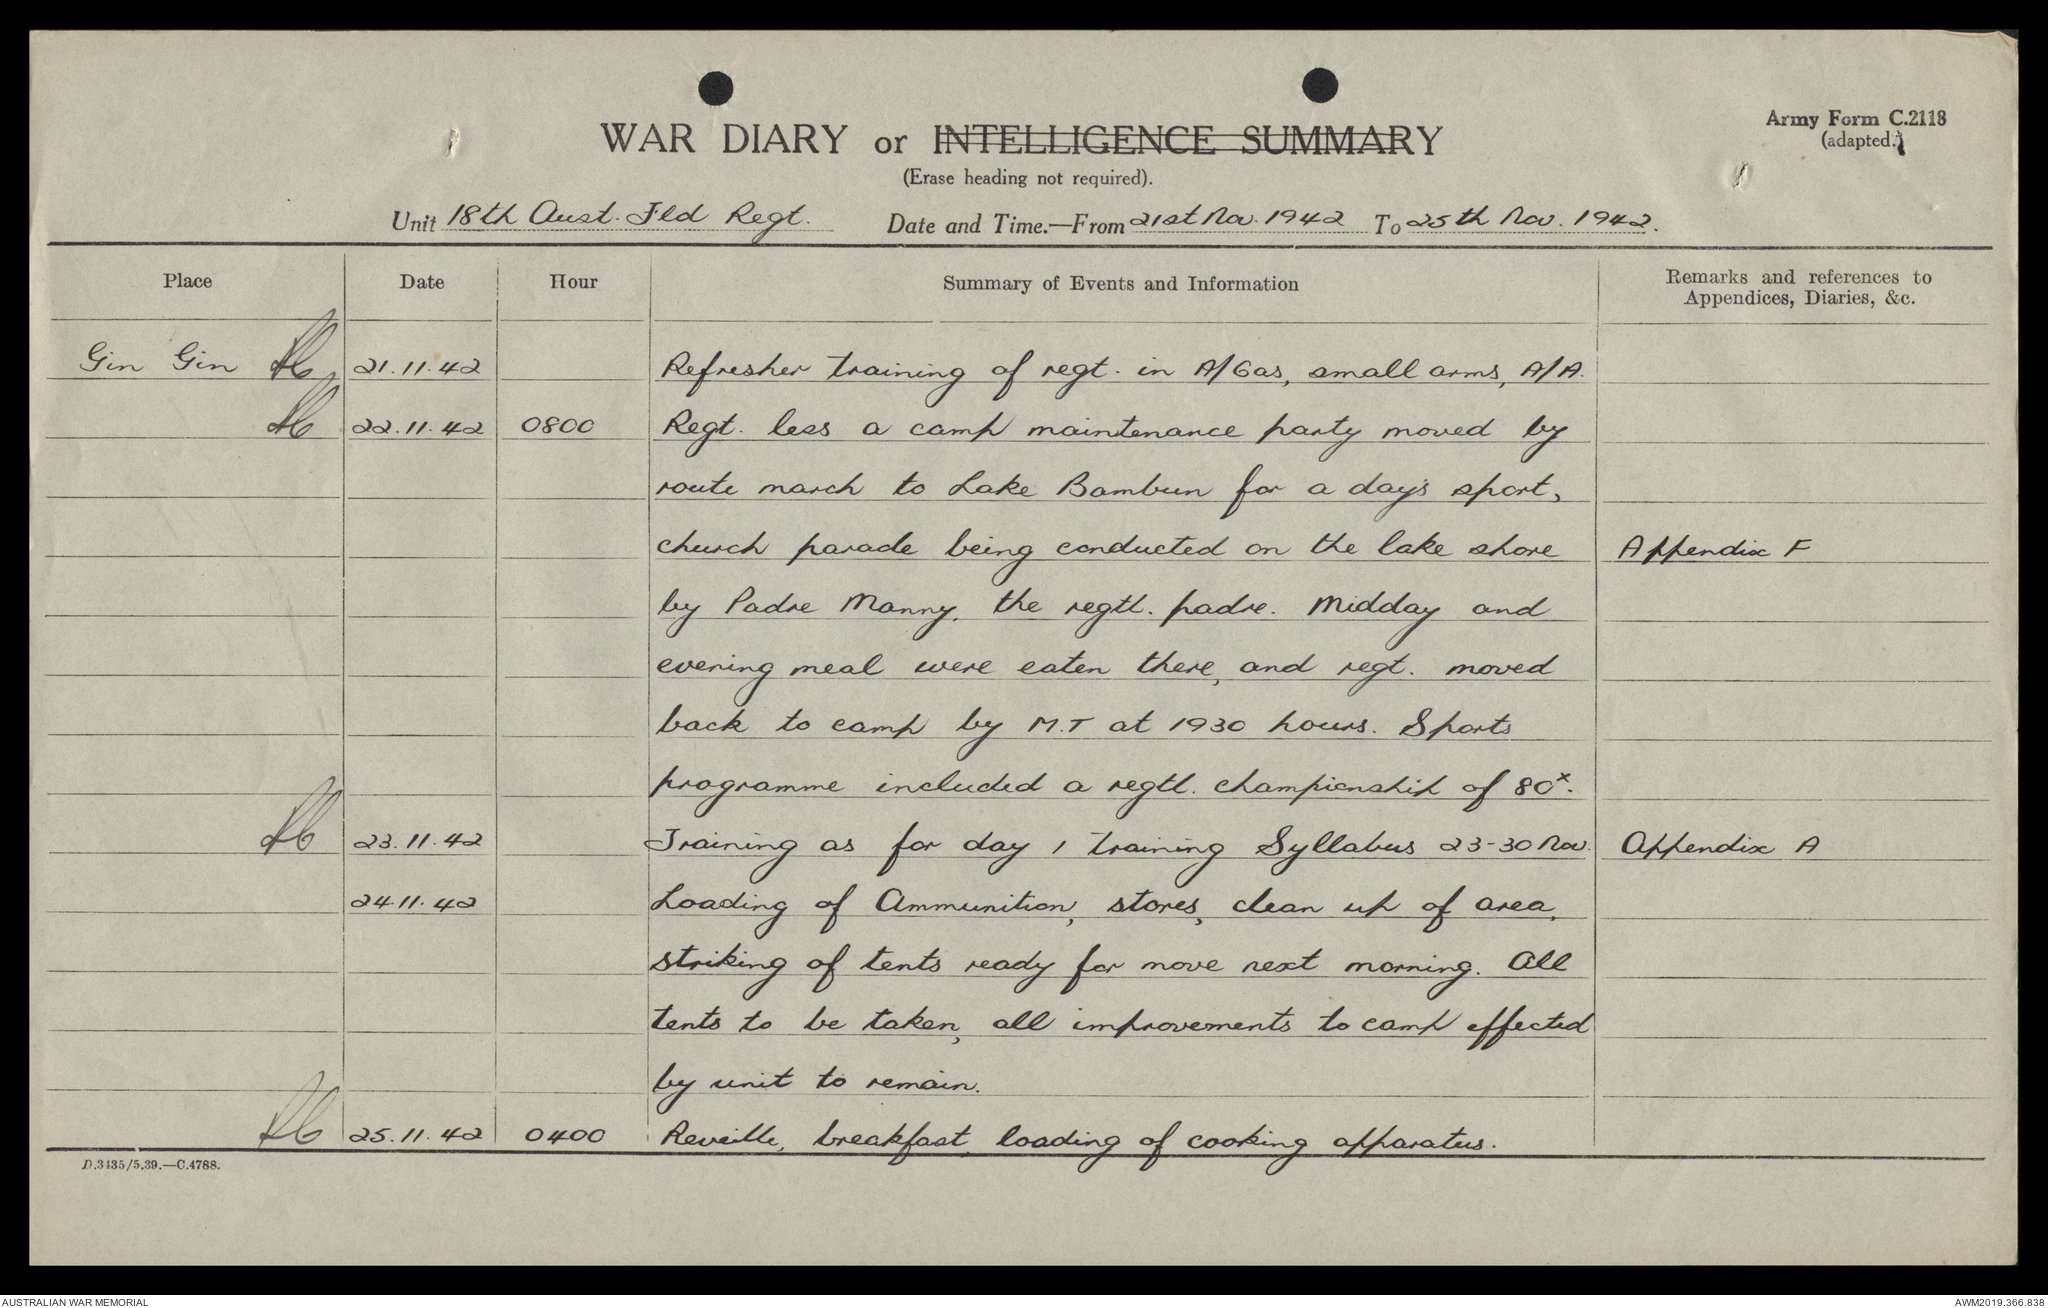 Army Form C.2118
(adapted.)
WAR DIARY or INTELLIGENCE SUMMARY
(Erase heading not required).
Unit 18th Aust. Fld Regt. Date and Time.—From 21st Nov. 1942 To 25th Nov. 1942.
Place Date Hour Summary of Events and Information Remarks and references to
Appendices, Diaries, &c.
Gin Gin 21.11.42 Refresher training of regt. in A/Gas, small arms, A/A.
22.11.42 0800 Regt. less a camp maintenance party moved by
route march to Lake Bambun for a day's sport,
church parade being conducted on the lake shore Appendix F
by Padre Manny, the regtl. padre. Midday and
evening meal were eaten there, and regt. moved
back to camp by M.T at 1930 hours. Sports
programme included a regtl. championship of 80ˣ.
23.11.42 Training as for day 1 training Syllabus 23-30 Nov. Appendix A
24.11.42 Loading of Ammunition, stores, clean up of area,
striking of tents ready for move next morning. All
tents to be taken, all improvements to camp effected
by unit to remain.
25.11.42 0400 Reveille, breakfast, loading of cooking apparatus.
D.3435/5.39.—C.4788.
AUSTRALIAN WAR MEMORIAL AWM2019.366.838